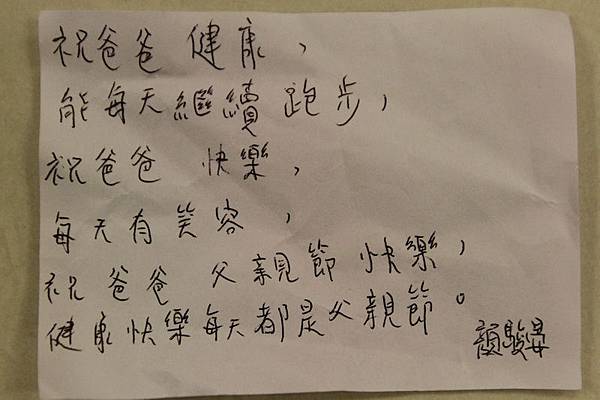 祝爸爸 健康，
能每天繼續跑步，
祝爸爸 快樂，
每天有笑容，
祝爸爸 父親節快樂，
健康快樂每天都是父親節。
顏駿晏